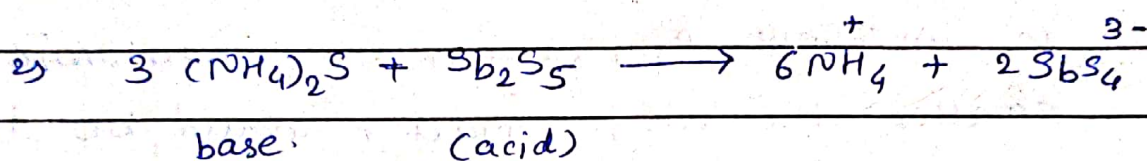 2) 3 (NH₄)₂S + Sb₂S₅ ⟶ 6NH₄⁺ + 2SbS₄³⁻
base. (acid)